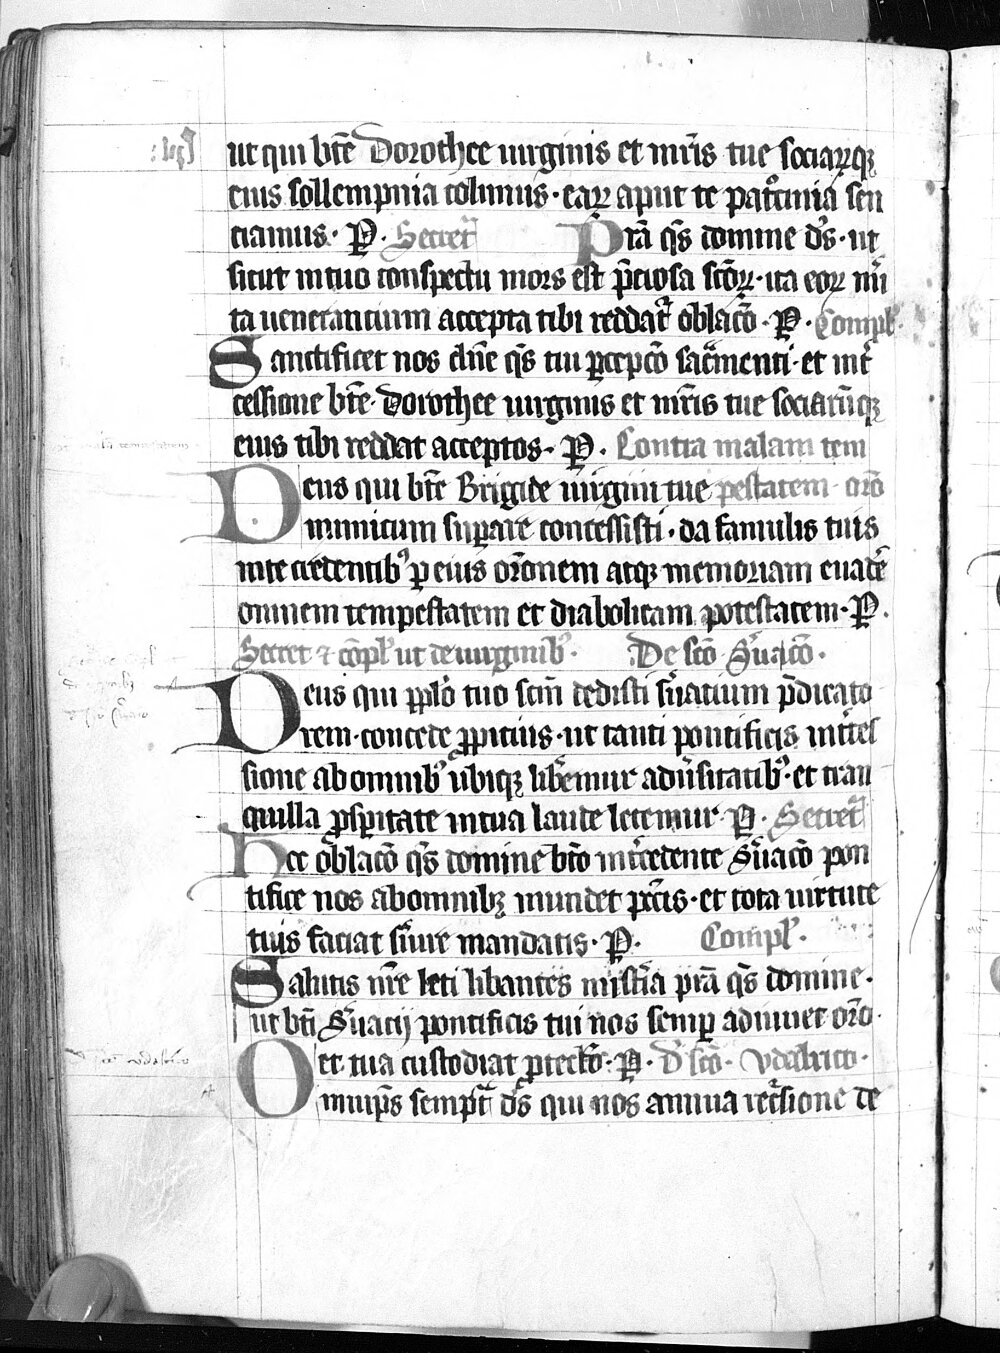 ut qui bt̄e Dorothee uirginis et mr̄is tue sociarꝝqꝫ
eius sollempnia colimus · eaꝝ aput te pat̊cinia sen
ciamus · ꝑ · Secret̄ Pr̄a qs̄ domine ds̄ · ut
sicut in tuo conspectu mors est p̄ciosa sc̄oꝝ · ita eoꝝ mr̄i
ta uenerantium accepta tibi reddat̄ oblac̄o · ꝑ · Compl̄ ·
Sanctificet nos dn̄e qs̄ tui ꝑcepc̄o sac̄menti · et int̄
cessione bt̄e · Dorothee uirginis et mr̄is tue sociarūqꝫ
eius tibi reddat acceptos · ꝑ · Contra malam tem
Deus qui bt̄e Brigide uirgini tue pestatem · orō
inimicum suꝑare concessisti · da famulis tuis
in te credentibꝰ ꝑ eius orōnem atqꝫ memoriam euadē
omnem tempestatem et diabolicam potestatem · ꝑ ·
Secret ⁊ cōpl̄ ut de uirginibꝰ · De sc̄o S̄uac̄o ·
Deus qui ppl̄o tuo sc̄m dedisti s̄uatium p̄dicato
rem · concede ꝓpitius · ut tanti pontificis int̄ces
sione ab omnibꝰ ubiqꝫ lib̄emur adūsitatibꝰ · et tran
quilla ꝓsꝑitate in tua laude letemur · ꝑ · Secret̄
Hec oblac̄o qs̄ domine bt̄o int̄cedente S̄uac̄o pon
tifice nos ab omnibꝫ mundet pc̄cis · et tota uirtute
tuis faciat s̄uire mandatis · ꝑ · Compl̄ ·
Salutis nr̄e leti libantes mist̄ia pr̄a qs̄ domine ·
ut bt̄i S̄uacij pontificis tui nos semꝑ adiuuet orō ·
et tua custodiat ꝓtecc̄o · ꝑ · D̄ sc̄o · Vdalrico ·
Omnip̄s sempt̄ ds̄ qui nos annua rec̄sione de